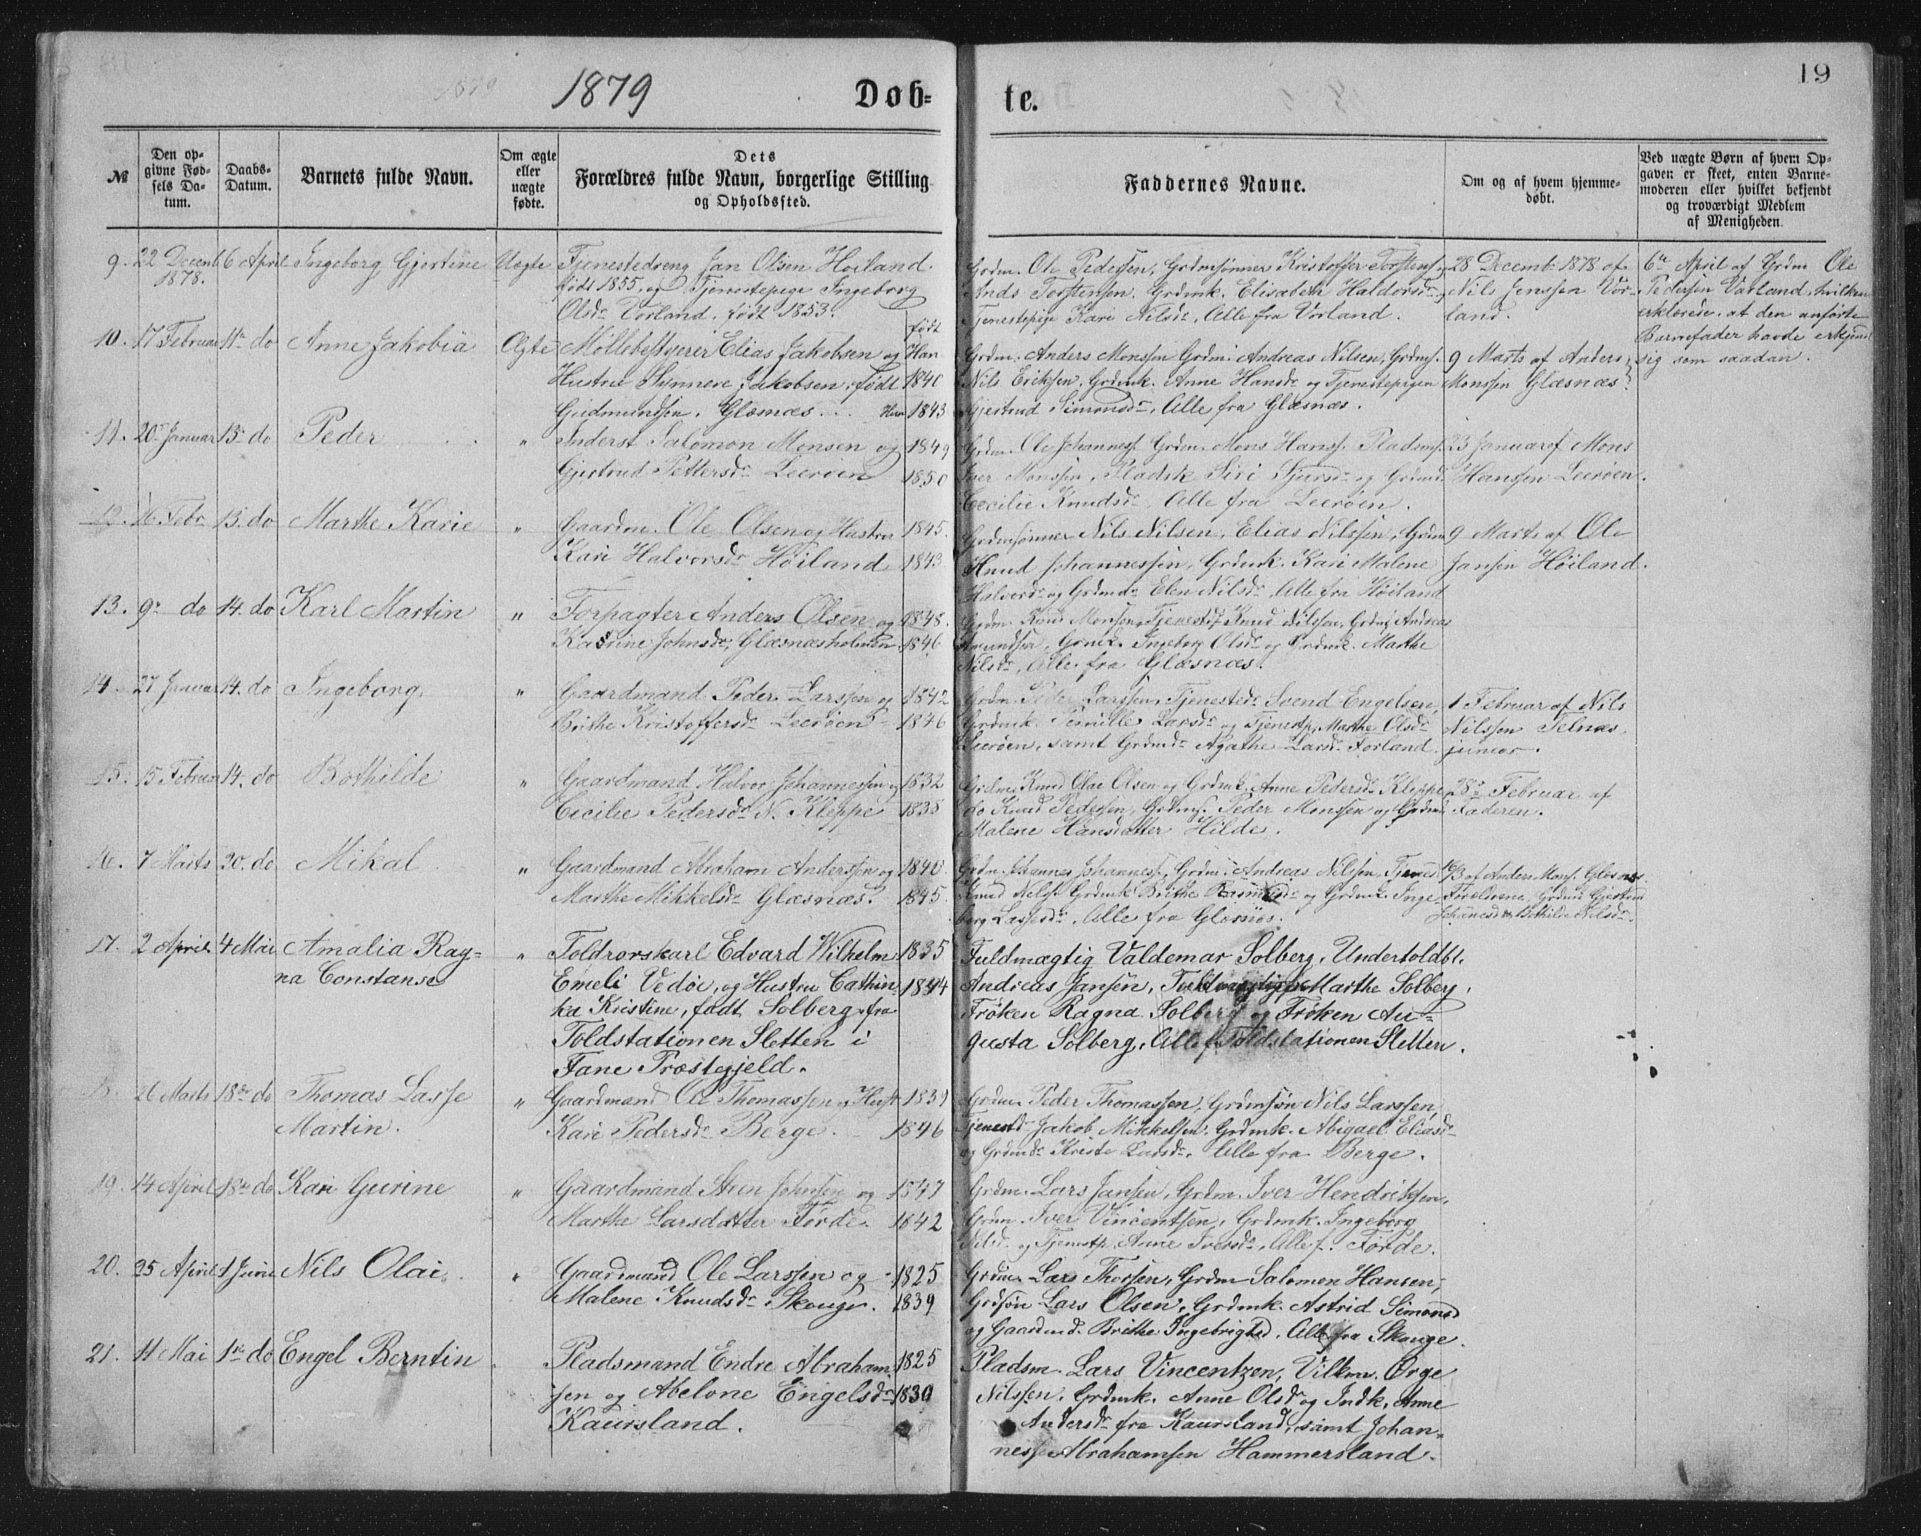 1879
Døb=
te.
19
№
Den op-
givne Fød-
sels Da-
tum.
Daabs-
Datum.
Barnets fulde Navn.
Om ægte
eller
uægte
fødte.
Dets
Forældres fulde Navn, borgerlige Stilling
og Opholdssted.
Faddernes Navne.
Om og af hvem hjemme-
døbt.
Ved uægte Børn af hvem Op-
gaven er skeet, enten Barne-
moderen eller hvilket bekjendt
og troværdigt Medlem
af Menigheden.
9. 22 Decemb 6 April Ingeborg Gjertine Uægte Tjenestedreng Jan Olsen Høiland
1878.
født 1855, og Tjenestepige Ingeborg
Olsdr Vorland, født 1853.
Grdm. Ole Pedersen, Grdmsønner Kristoffer Torstens og
Ands Torstensen, Grdmk. Elisabeth Haldorsdr
Tjenestepige Kari Nilsdr, Alle fra Vorland.
28 Decemb 1878 af
Nils Jenssen Vor-
land.
6te April af Grdm Ole
Pedersen Vorland, hvilken
erklærede, at den anførte
Barnefader havde erkjendt
sig som saadan.
10. 17 Februar 11te do Anne Jakobia Ægte Møllebestyrer Elias Jakobsen og
født
Han
Hustru Synnere Jakobsen, født 1840
Gudmundsen, Glæsnæs. Hun 1843
Grdm. Anders Monssen Grdm. Andreas Nilsen, Grdms.
Nils Ericksen, Grdmk. Anne Hansdr og Tjenestepigen
Gjertrud Simonsdr, Alle fra Glæsnæs.
9 Marts af Anders
Monssen Glæsnæs.
11. 20 Januar 13 do Peder " Inderst Salomon Monsen og 1849
Gjertrud Pettersdr Leerøen 1850
Grdm. Ole Johanness. Grdm. Mons Hanss. Pladsms.
Iver Monssen, Pladsk Siri Sjursdr og Grdmd.
Cecilie Knudsdr, Alle fra Leerøen.
23 Januar af Mons
Hanssen Leerøen.
12. 16 Febr 13. do Marthe Karie " Gaardm. Ole Olsen og Hustru 1845.
Kari Halvorsdr Høiland 1843
Grdmsønner Nils Nilsen, Elias Nilssen, Grdm
Knud Johannessen, Grdmk. Kari Malene
Halvorsdr og Grdmd Elen Nilsdr, Alle fra Høiland
9 Marts af Ole
Jansen Høiland.
13. 9 do 14. do Karl Martin " Forpagter Anders Olsen og 1848.
Katrine Johnsdr, Glæsnæsholmen 1846
Grdm. Knud Monsen, Tjenestdr Knud Nilssen, Grdms Andreas
Amundsen, Grdmk. Ingeborg Olsdr og Grdmk. Marthe
Nilsdr, Alle fra Glæsnæs.
14. 27 Januar 14. do Ingeborg " Gaardmand Peder Larssen og 1842
Brithe Kristoffersdr Leerøen 1846
Grdm Peder Larssen, Tjenestedr Svend Engelsen,
Grdmk. Pernille Larsdr og Tjenestp. Marthe Olsdr
Leerøen, samt Grdmdr Agathe Larsdr Forland
1 Februar af Nils
Nilssen Telnæs,
junior.
15. 15 Februar 14. do Bothilde " Gaardmand Halvor Johannessen og 1832
Cecilie Pedersdr N. Kleppe 1838
Grdm. Knud Olai Olsen og Grdmk. Anne Pedersdr Kleppe
do Knud Pedersen, Grdms. Peder Monssen og Grdmd
Malene Hansdatter Hilde.
28de Februar af
Faderen.
16. 7 Marts 20. do Mikal " Gaardmand Abraham Anderssen og 1840
Marthe Mikkelsdr Glæsnæs. 1845.
Grdm. Johannes Johanness, Grdm. Andreas Nilssen, Tjenes
Knud Nilss. Grdmk Brithe Rasmusdr og Grdmk. Inge-
borg Lassesdr, Alle fra Glæsnæs.
16/3 af Anders Mons. Glæsnæs.
17. 2 April 4 Mai Amalia Rag- " Toldrorskarl Edvard Wilhelm 1835
na Constanse Emeli Vedøe, og Hustru Cathin- 1844
ka Kristine, født Solberg fra
Toldstationen Sletten i
Fane Præstegjeld.
Fuldmægtig Valdemar Solberg, Undertoldbt.
Andreas Jansen, Marthe Solberg,
Frøken Ragna Solberg og Frøken Au-
gusta Solberg, Alle f. Toldstationen Sletten.
18. 26 Marts 18de do Thomas Lasse " Gaardmand Ole Thomassen og Hust 1839
Martin. Kari Pedersdr Berge. 1846
Grdm Peder Thomassen, Grdmsøn Nils Larssen,
Tjenestdr Jakob Mikkelsen, Grdmk. Abigael Eliasdr
og Grdmdr Kriste Larsdr, Alle fra Berge.
19. 14 April 18de do Kari Gurine " Gaardmand Aren Johnsen og 1847
Marthe Larsdatter Førde. 1842
Grdm. Lars Jansen, Grdm. Iver Hendriksen,
Grdm. Iver Vincentsen, Grdmk. Ingeborg
Nilsd. og Tjenestp. Anne Iversdr, Alle f. Førde.
20. 25 April 1 Juni Nils Olai. " Gaardmand Ole Larssen og 1825
Malene Knudsdr Skouge. 1839
Grdm. Lars Thorsen, Grdm Salomon Hansen,
Grdsøn Lars Olsen, Grdmk. Astrid Simonsd
og Gaardmd. Brithe Ingebrigtsd, Alle fra Skouge.
21. 11 Mai 1ste do Engel Berntin Pladsmand Endre Abraham- 1825
sen og Abelone Engelsdr 1830
Kaursland.
Pladsm. Lars Vincentzen, Vilkm. Ørge
Nilssen, Grdmk. Anne Olsdr og Indk. Anne
Andersdr fra Kaursland, samt Johan-
nes Abrahamsen Hammersland.